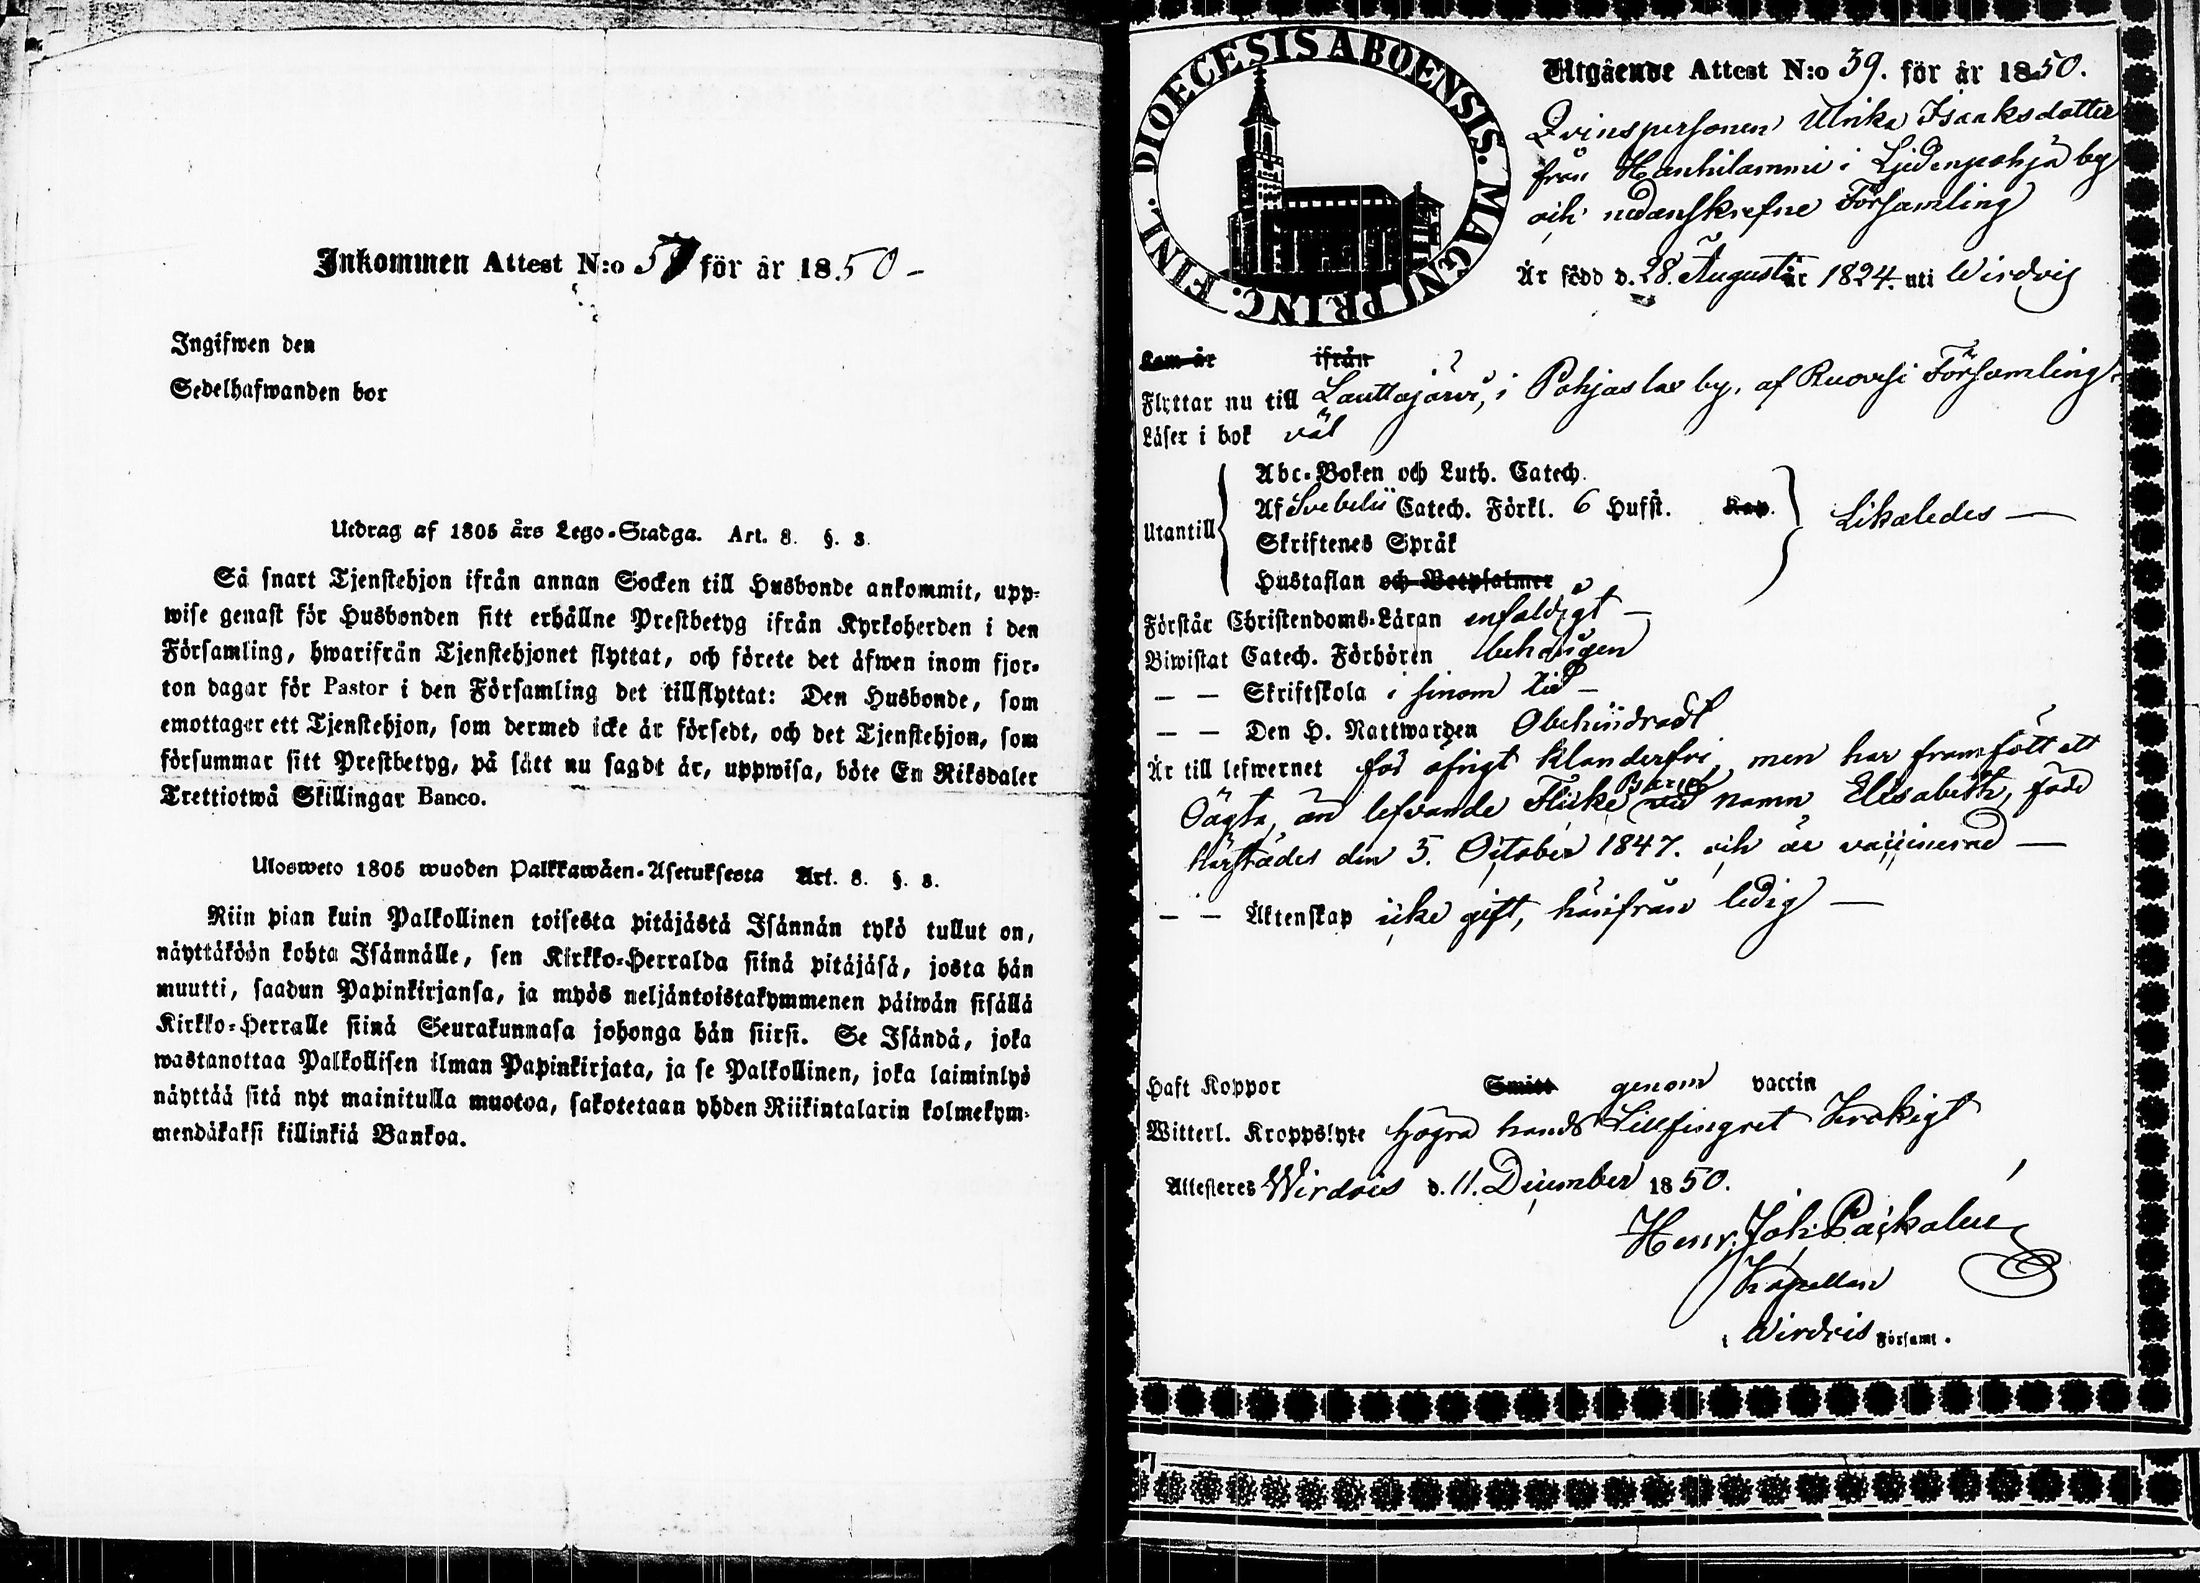 Inkommen Attest N:o 57 för år 1850 –
Ingifwen den
Sedelhafwanden bor
Utdrag af 1805 års Lego-Stadga. Art. 8. §. 8.
Så snart Tjenstehjon ifrån annan Socken till Husbonde ankommit, upp-
wise genast för Husbonden sitt erhållne Prestbetyg ifrån Kyrkoherden i den
Församling, hwarifrån Tjenstehjonet flyttat, och förete det äfwen inom fjor-
ton dagar för Pastor i den Församling det tillflyttat: Den Husbonde, som
emottager ett Tjenstehjon, som dermed icke är försedt, och det Tjenstehjon, som
försummar sitt Prestbetyg, på sätt nu sagdt är, uppwisa, böte En Riksdaler
Trettiotwå Skillingar Banco.
Ulosweto 1805 wuoden Palkkawäen-Asetuksesta Art. 8. §. 8.
Niin pian kuin Palkollinen toisesta pitäjästä Isännän tykö tullut on,
näyttäköön kohta Isännälle, sen Kirkko-Herralda siinä pitäjäsä, josta hän
muutti, saadun Papinkirjansa, ja myös neljäntoistakymmenen päiwän sisällä
Kirkko-Herralle siinä Seurakunnasa johonga hän siirsi. Se Isändä, joka
wastanottaa Palkollisen ilman Papinkirjata, ja se Palkollinen, joka laiminlyö
näyttää sitä nyt mainitulla muotoa, sakotetaan yhden Riikintalarin kolmekym-
mendäkaksi killinkiä Bankoa.
DIOECESIS ABOENSIS. MAGNI PRINC. FINL.
Utgående Attest N:o 39. för år 1850.
Qvinspersonen Ulrika Isaaksdotter
från Hanhilammi i Ljedenpohja by
och nedanskrefne Församling
Är född d. 28. Augusti år 1824. uti Wirdois
Kom år ifrån
Flyttar nu till Lauttajärvi, i Pohjaslax by, af Ruovesi Församling.
Läser i bok väl
Abc-Boken och Luth. Catech.
Utantill Af Svebelii Catech. Förkl. 6 Hufst. Kap. Likaledes —
Skriftenes Språk
Hustaflan och Botpsalmer
Förstår Christendoms-Läran enfaldigt —
Biwistat Catech. Förhören behörigen
— — Skriftskola i sinom tid –
— — Den H. Nattwarden Obehindradt
Är till lefwernet för öfrigt klanderfri, men har framfött ett
Oägta, än lefvande Flicke Barn vid namn Elisabeth, född
härstädes den 5. October 1847. och är vaccinerad —
— — Äktenskap icke gift, härifrån ledig —
Haft Koppor Smitt genom vaccin
Witterl. Kroppslyte högra hands Lillfingret krokigt
Attesteres Wirdois d. 11. December 1850.
Henr. Joh.
Kapellan
i Wirdois Församl.